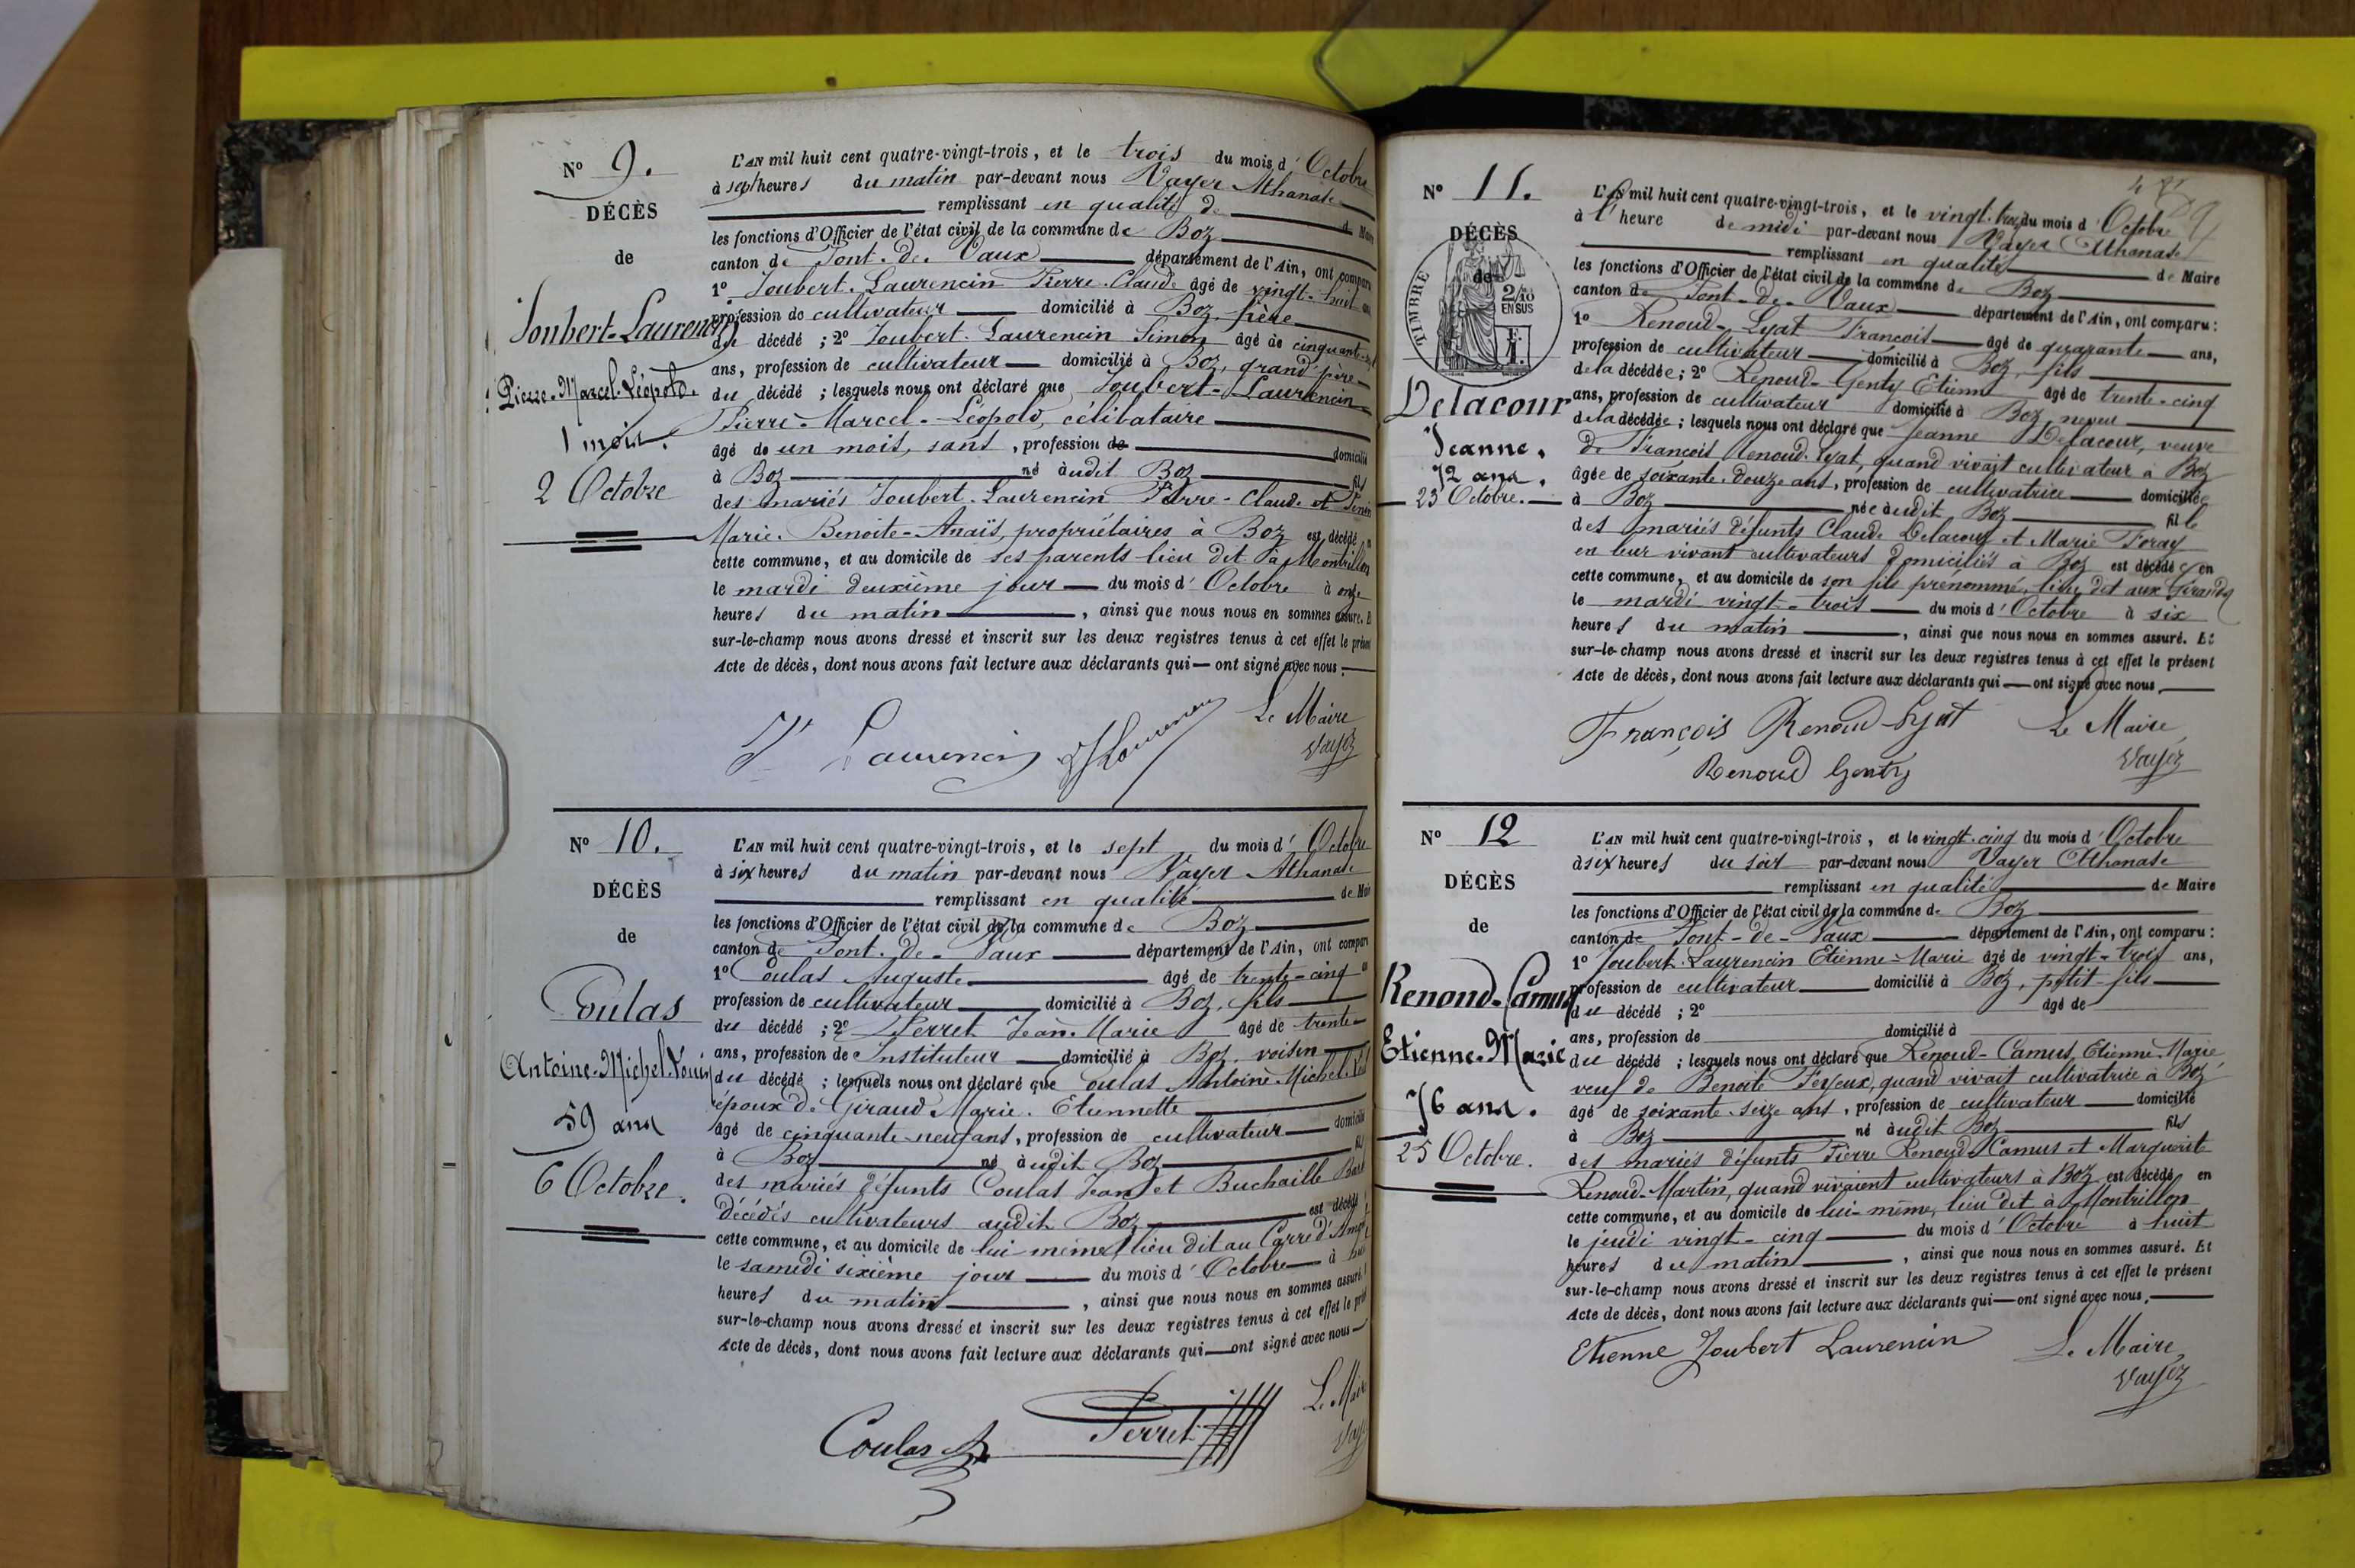 N° 9.
DÉCÈS
de
Joubert-Laurencin
Pierre-Marcel-Léopold.
1 mois.
2 Octobre
L'AN mil huit cent quatre-vingt-trois, et le trois du mois d'Octobre
à sept heures du matin par-devant nous Vayer Athanase
remplissant en qualité de Maire
les fonctions d'Officier de l'état civil de la commune de Boz
canton de Pont-de-Vaux département de l'Ain, ont comparu
1° Joubert-Laurencin Pierre-Claude âgé de vingt-huit ans
profession de cultivateur domicilié à Boz, père
du décédé ; 2° Joubert-Laurencin Simon âgé de cinquante
ans, profession de cultivateur domicilié à Boz, grand père
du décédé ; lesquels nous ont déclaré que Joubert-Laurencin
Pierre-Marcel-Léopold, célibataire
âgé de un mois, sans, profession de domicilié
à Boz né audit Boz fils
des mariés Joubert-Laurencin Pierre-Claude et
Marie-Benoite-Anaïs, propriétaires à Boz est décédé en
cette commune, et au domicile de ses parents lieu dit à Montrillon
le mardi deuxième jour du mois d'Octobre à onze
heures du matin, ainsi que nous nous en sommes assuré. Et
sur-le-champ nous avons dressé et inscrit sur les deux registres tenus à cet effet le présent
Acte de décès, dont nous avons fait lecture aux déclarants qui ont signé avec nous.
Laurencin Le Maire
Vayer
N° 10.
DÉCÈS
de
Coulas
Antoine-Michel-Louis
59 ans
6 Octobre.
L'AN mil huit cent quatre-vingt-trois, et le sept du mois d'Octobre
à six heures du matin par-devant nous Vayer Athanase
remplissant en qualité de Maire
les fonctions d'Officier de l'état civil de la commune de Boz
canton de Pont-de-Vaux département de l'Ain, ont comparu
1° Coulas Auguste âgé de trente-cinq
profession de cultivateur domicilié à Boz, fils
du décédé ; 2° Perret Jean-Marie âgé de trente
ans, profession de Instituteur domicilié à Boz, voisin
du décédé ; lesquels nous ont déclaré que Coulas Antoine-Michel
époux de Giraud Marie-Etiennette
âgé de cinquante-neuf ans, profession de cultivateur domicilié
à Boz né audit Boz fils
des mariés défunts Coulas Jean et Buchaille
décédés cultivateurs audit Boz est décédé
cette commune, et au domicile de lui même lieu dit au Carré
le samedi sixième jour du mois d'Octobre à
heures du matin, ainsi que nous nous en sommes assuré.
sur-le-champ nous avons dressé et inscrit sur les deux registres tenus à cet effet le présent
Acte de décès, dont nous avons fait lecture aux déclarants qui ont signé avec nous
Coulas Perret Le Maire
N° 11.
DÉCÈS
de
TIMBRE
2/10
EN SUS
Delacour
Jeanne.
72 ans.
23 Octobre.
L'AN mil huit cent quatre-vingt-trois, et le vingt-trois du mois d'Octobre
à l'heure de midi par-devant nous Vayer Athanase
remplissant en qualité de Maire
les fonctions d'Officier de l'état civil de la commune de Boz
canton de Pont-de-Vaux département de l'Ain, ont comparu :
1° Renoud-Lyat François âgé de quarante ans,
profession de cultivateur domicilié à Boz, fils
de la décédée ; 2° Renoud-Genty Etienne âgé de trente-cinq
ans, profession de cultivateur domicilié à Boz, neveu
de la décédée ; lesquels nous ont déclaré que Jeanne Delacour, veuve
de François Renoud-Lyat, quand vivait cultivateur à Boz
âgée de soixante-douze ans, profession de cultivatrice domiciliée
à Boz née audit Boz fille
des mariés défunts Claude Delacour et Marie Foray
en leur vivant cultivateurs domiciliés à Boz est décédée en
cette commune, et au domicile de son fils prénommé, lieu dit aux Girauds
le mardi vingt-trois du mois d'Octobre à six
heures du matin, ainsi que nous nous en sommes assuré. Et
sur-le-champ nous avons dressé et inscrit sur les deux registres tenus à cet effet le présent
Acte de décès, dont nous avons fait lecture aux déclarants qui ont signé avec nous.
François Renoud-Lyat Le Maire
Renoud Genty Vayer
N° 12
DÉCÈS
de
Renoud-Camus
Etienne-Marie
76 ans.
25 Octobre.
L'AN mil huit cent quatre-vingt-trois, et le vingt-cinq du mois d'Octobre
à six heures du soir par-devant nous Vayer Athanase
remplissant en qualité de Maire
les fonctions d'Officier de l'état civil de la commune de Boz
canton de Pont-de-Vaux département de l'Ain, ont comparu :
1° Joubert-Laurencin Etienne-Marie âgé de vingt-trois ans,
profession de cultivateur domicilié à Boz, petit-fils
du décédé ; 2° âgé de
ans, profession de domicilié à
du décédé ; lesquels nous ont déclaré que Renoud-Camus, Etienne-Marie
veuf de Benoite Feyeux, quand vivait cultivatrice à Boz
âgé de soixante-seize ans, profession de cultivateur domicilié
à Boz né audit Boz fils
des mariés défunts Pierre Renoud-Camus et Marguerite
Renoud-Martin, quand vivaient cultivateurs à Boz est décédé en
cette commune, et au domicile de lui-même, lieu dit à Montrillon
le jeudi vingt-cinq du mois d'Octobre à huit
heures du matin, ainsi que nous nous en sommes assuré. Et
sur-le-champ nous avons dressé et inscrit sur les deux registres tenus à cet effet le présent
Acte de décès, dont nous avons fait lecture aux déclarants qui ont signé avec nous.
Etienne Joubert Laurencin Le Maire
Vayer